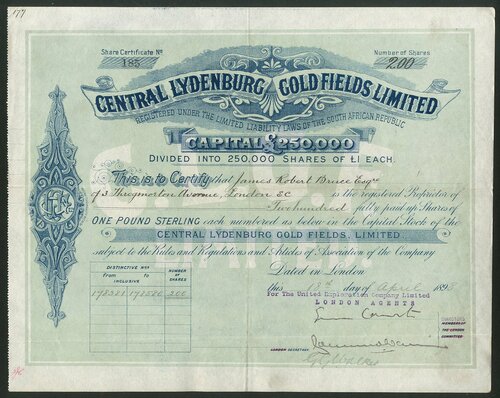 177
Share Certificate No. Number of Shares
185 200
CENTRAL LYDENBURG GOLD FIELDS LIMITED
REGISTERED UNDER THE LIMITED LIABILITY LAWS OF THE SOUTH AFRICAN REPUBLIC
CAPITAL £250,000
DIVIDED INTO 250,000 SHARES OF £1 EACH.
This is to Certify that James Robert Bruce Esqre
of 3 Throgmorton Avenue, London EC is the registered Proprietor of
Two hundred fully paid up Shares of
ONE POUND STERLING each numbered as below in the Capital Stock of the
CENTRAL LYDENBURG GOLD FIELDS, LIMITED.
subject to the Rules and Regulations and Articles of Association of the Company
Dated in London
this 18th day of April 1895
DISTINCTIVE Nos. NUMBER OF SHARES
from to
INCLUSIVE
178381 178580 200
For The United Exploration Company Limited
LONDON AGENTS
DIRECTORS
MEMBERS OF THE LONDON COMMITTEE
LONDON SECRETARY